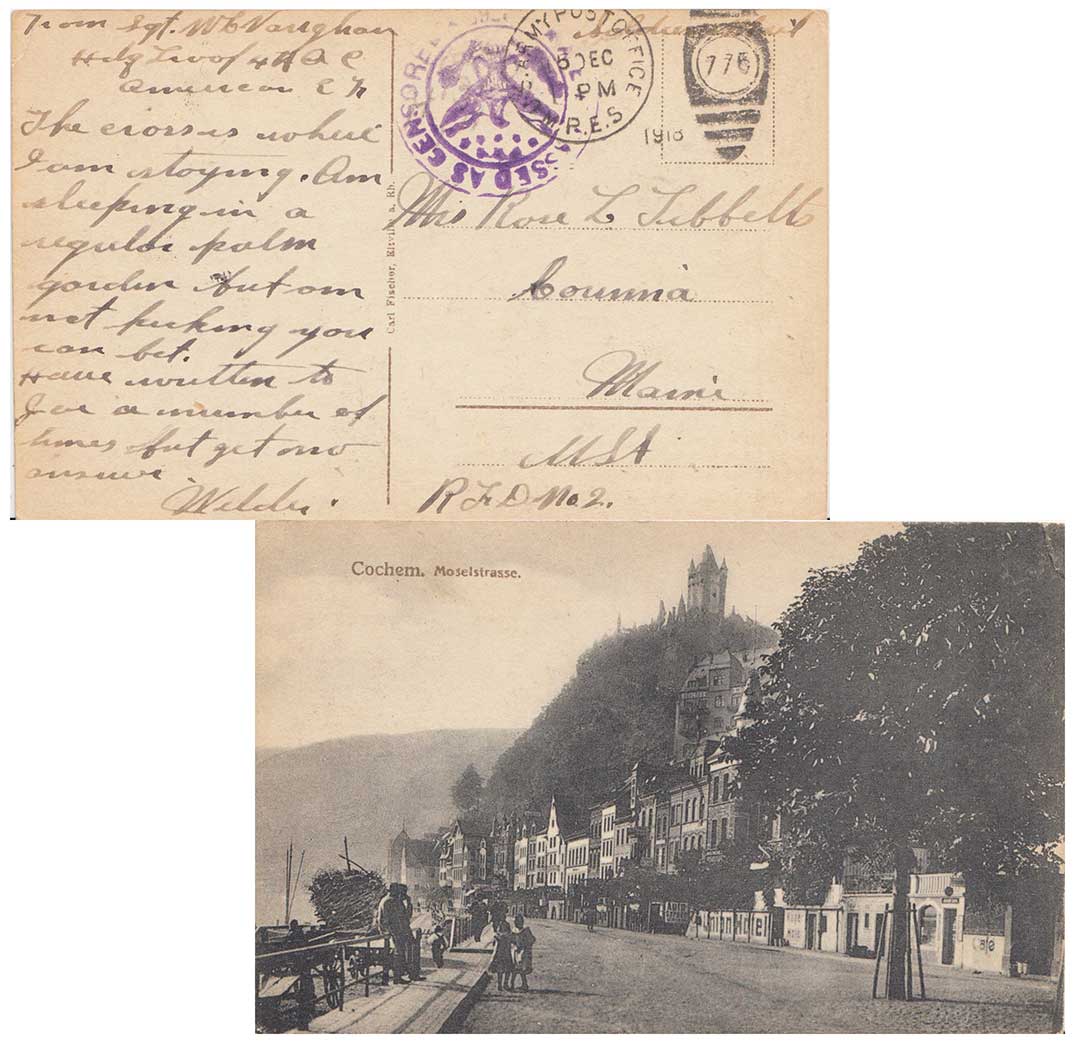 From Sgt. W L Vaughan
Hdq Troop 4th A C
American E F
The cross is where
I am staying. Am
sleeping in a
regular palm
garden but am
not kicking you
can bet.
Have written to
Joe a number of
times but get no
answer.
Welder.
Soldiers Mail
PASSED AS CENSORED
U.S. ARMY POST OFFICE
6 DEC
PM
M.R.E.S
1918
776
Carl Fischer, Eltville a. Rh.
Mrs Rose L Tibbetts
Corinna
Maine
USA
R F D No 2.
Cochem. Moselstrasse.